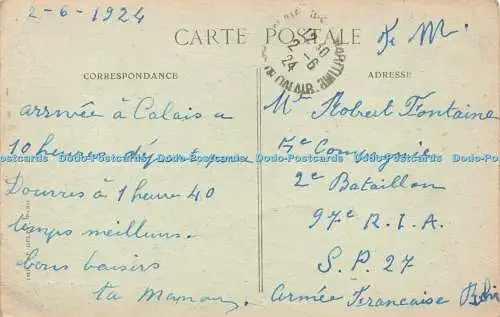 2-6-1924
CARTE POSTALE
F. M.
CORRESPONDANCE
ADRESSE
arrivée à Calais a
10 heures départ pour
Douvres à 1 heure 40
temps meilleurs.
bons baisers
ta Maman
Mr Robert Fontaine
7e Compagnie
2e Bataillon
97e R.I.A.
S.P. 27
Armée Francaise
Dodo-Postcards Dodo-Postcards Dodo-Postcards Dodo-Postcards Dodo-Postcards Dodo-Postcards